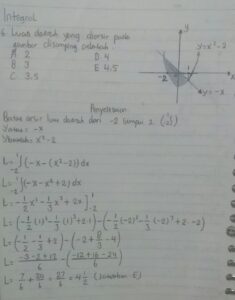 Integral
6. Luas daerah yang diarsir pada
gambar disamping adalah:
A. 2 D. 4
B. 3 E. 4.5
C. 3.5
y
y=x²-2
-2
x
y=-x
Penyelesaian
Batas arsir luas daerah dari -2 sampai 1
Yatas = -x
Ybawah = x²-2
L = ∫ (-x-(x²-2)) dx
L = ∫ (-x-x²+2) dx
L = -1/2 x² - 1/3 x³ + 2x ]
L = (-1/2 (1)² - 1/3 (1)³ + 2.1) - (-1/2 (-2)² - 1/3 (-2)³ + 2.-2)
L = (-1/2 - 1/3 + 2) - (-2 + 8/3 - 4)
L = -3-2+12/6 - (-12+16-24/6)
L = 7/6 + 20/6 = 27/6 = 4 1/2 (Jawaban E)